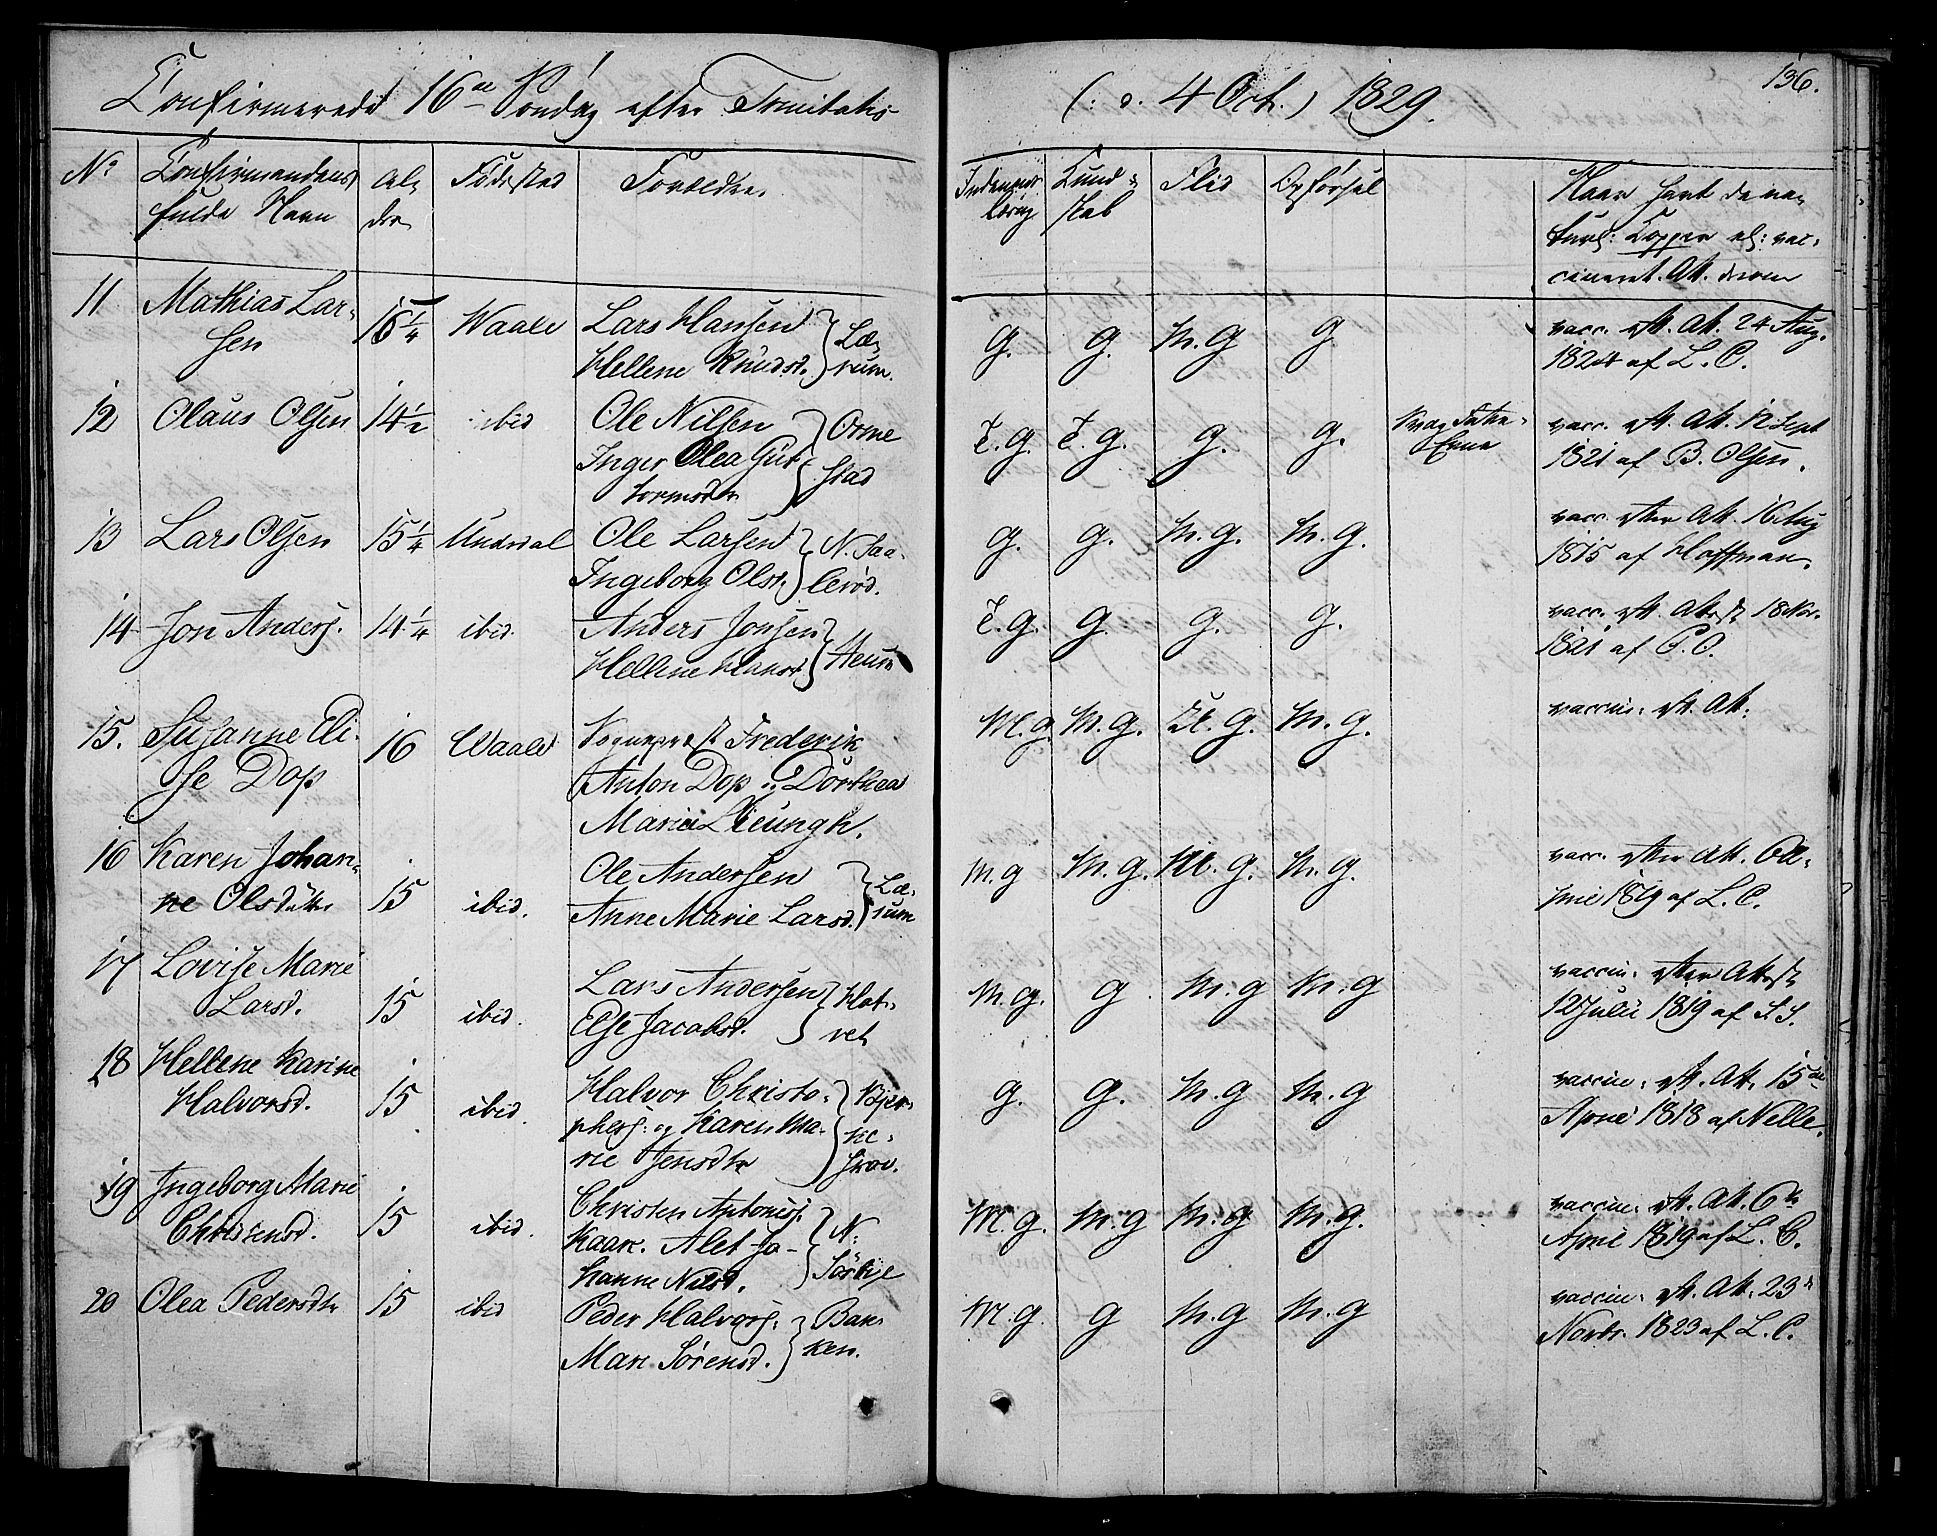 Confirmerede 16de Søndag efter Trinitatis (: d. 4 Oct.) 1829.
136.
No Confirmandens fulde Navn Alder Fødested Forældre. Indenad læsning Kundskab Flid Opførsel Naar havt de naturl: Kopper el: vaccineret. Att. derom
11 Mathias Larsen 16 1/4 Waale Lars Hansen Hellene Knudsd. Lærum. g. g. M. g g vacc. eft. Att. 24 Aug. af L. C.
12 Olaus Olsen 14 1/2 ibid Ole Nilsen Inger Olea Guttormsdtr Ormestad T. g. T. g. g. g. Svag Fatte-Evne vacc. eft. Att. 12 Sept 1821 af B. Olsen.
13 Lars Olsen 15 1/4 Undrdal Ole Larsen Ingeborg Olsd. N. Saalerød. g. g. M. g. M. g. vacc. efter Att. 16 Aug 1815 af Hoffman.
14 Jon Anders. 14 1/4 ibid. Anders Jonsen Hellene Hansd. Heum T. g. g. g. g. vacc. eft. Attest 18 Nov. 1821 af C. O.
15. Susanne Elise Dop 16 Waale Sognepræst Frederik Anton Dop og Dorthea Maria Lieungh. M. g. M. g. M. g. vaccin: eft. Att:
16 Karen Johanne Olsdatter 15 ibid. Ole Andersen Anne Marie Larsd. Lærum M. g M. g. M. g. M. g. vacc. efter Att. 1819 af L. C.
17 Lovise Marie Larsd. 15 ibid. Lars Andersen Else Jacobsd. Hotvet M. g. g M. g M. g vaccin: efter Attest 12 Julii 1819 af S. S.
18 Hellene Karine Halvorsd. 15 ibid. Halvor Christophers: og Karen Marie Jensdtr g. g. M. g M. g vaccin: eft. Att. 15de April 1818 af Nelle.
19 Ingeborg Marie Christensd. 15 ibid. Christen Antonis. Kaar. Alet Johanne Nilsd. N: M. g. M. g M. g M. g. vaccin: eft. Att. 6te April 1819 af L. C.
20 Olea Pedersdtr 15 ibid Peder Halvors: Mari Sørensd. Bakken. M. g. g M. g M. g vaccin: eft. Att. 23d Novbr. 1823 af L. C.